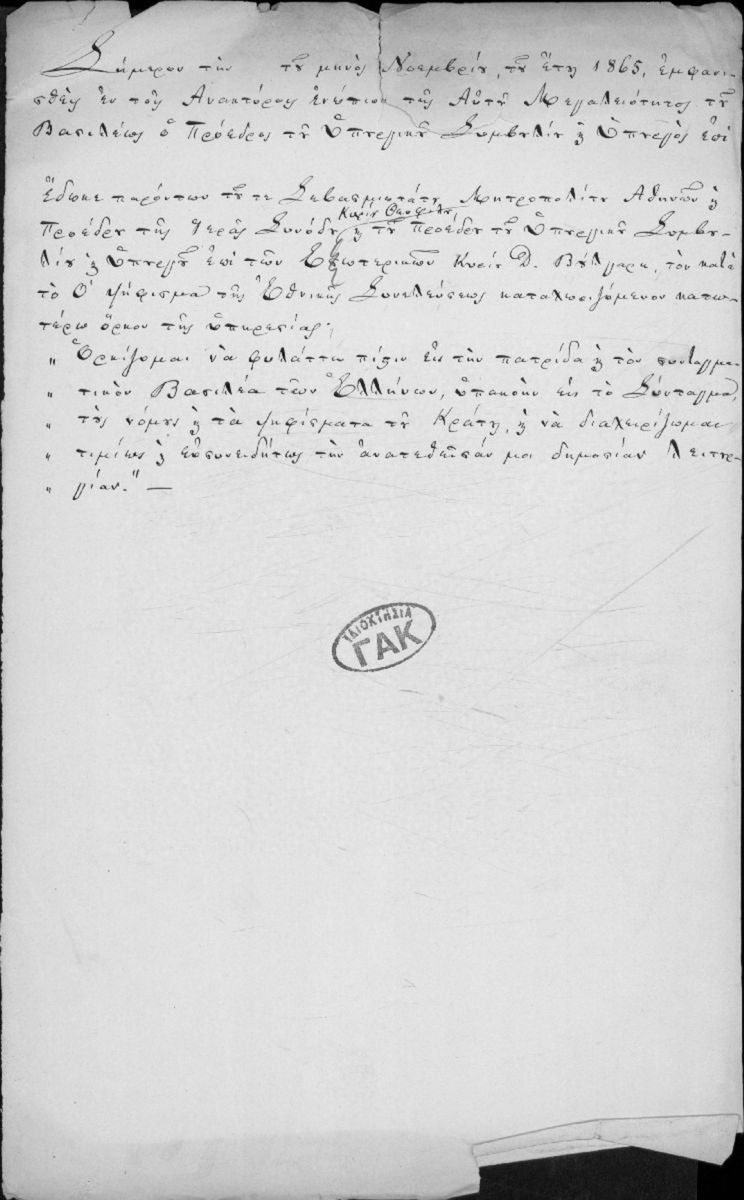 Σήμερον τὴν τοῦ μηνὸς Νοεμβρίου, τοῦ ἔτους 1865, ἐμφανι-
σθεὶς ἐν τοῖς Ἀνακτόροις ἐνώπιον τῆς Αὐτοῦ Μεγαλειότητος τοῦ
Βασιλέως ὁ Πρόεδρος τοῦ Ὑπουργικοῦ Συμβουλίου ϗ Ὑπουργὸς ἐπὶ
ἔδωκε παρόντων τοῦ τε Σεβασμιωτάτου Μητροπολίτου Ἀθηνῶν ϗ
Κυρίου Θεοφίλου,
Προέδρου τῆς Ἱερᾶς Συνόδου ϗ τοῦ Προέδρου τοῦ Ὑπουργικοῦ Συμβου-
λίου ϗ Ὑπουργοῦ ἐπὶ τῶν Ἐξωτερικῶν Κυρίου Δ. Βούλγαρη, τὸν κατὰ
τὸ Ο' ψήφισμα τῆς Ἐθνικῆς Συνελεύσεως καταχωριζόμενον κατω-
τέρω ὅρκον τῆς ὑπηρεσίας:
„ Ὁρκίζομαι νὰ φυλάττω πίστιν εἰς τὴν πατρίδα ϗ τὸν συνταγμα-
„ τικὸν Βασιλέα τῶν Ἑλλήνων, ὑπακοὴν εἰς τὸ Σύνταγμα,
„ τοὺς νόμους ϗ τὰ ψηφίσματα τοῦ Κράτους, ϗ νὰ διαχειρίζωμαι
„ τιμίως ϗ εὐσυνειδήτως τὴν ἀνατεθεῖσάν μοι δημοσίαν λειτουρ-
„ γίαν." —
ΙΔΙΟΚΤΗΣΙΑ
ΓΑΚ